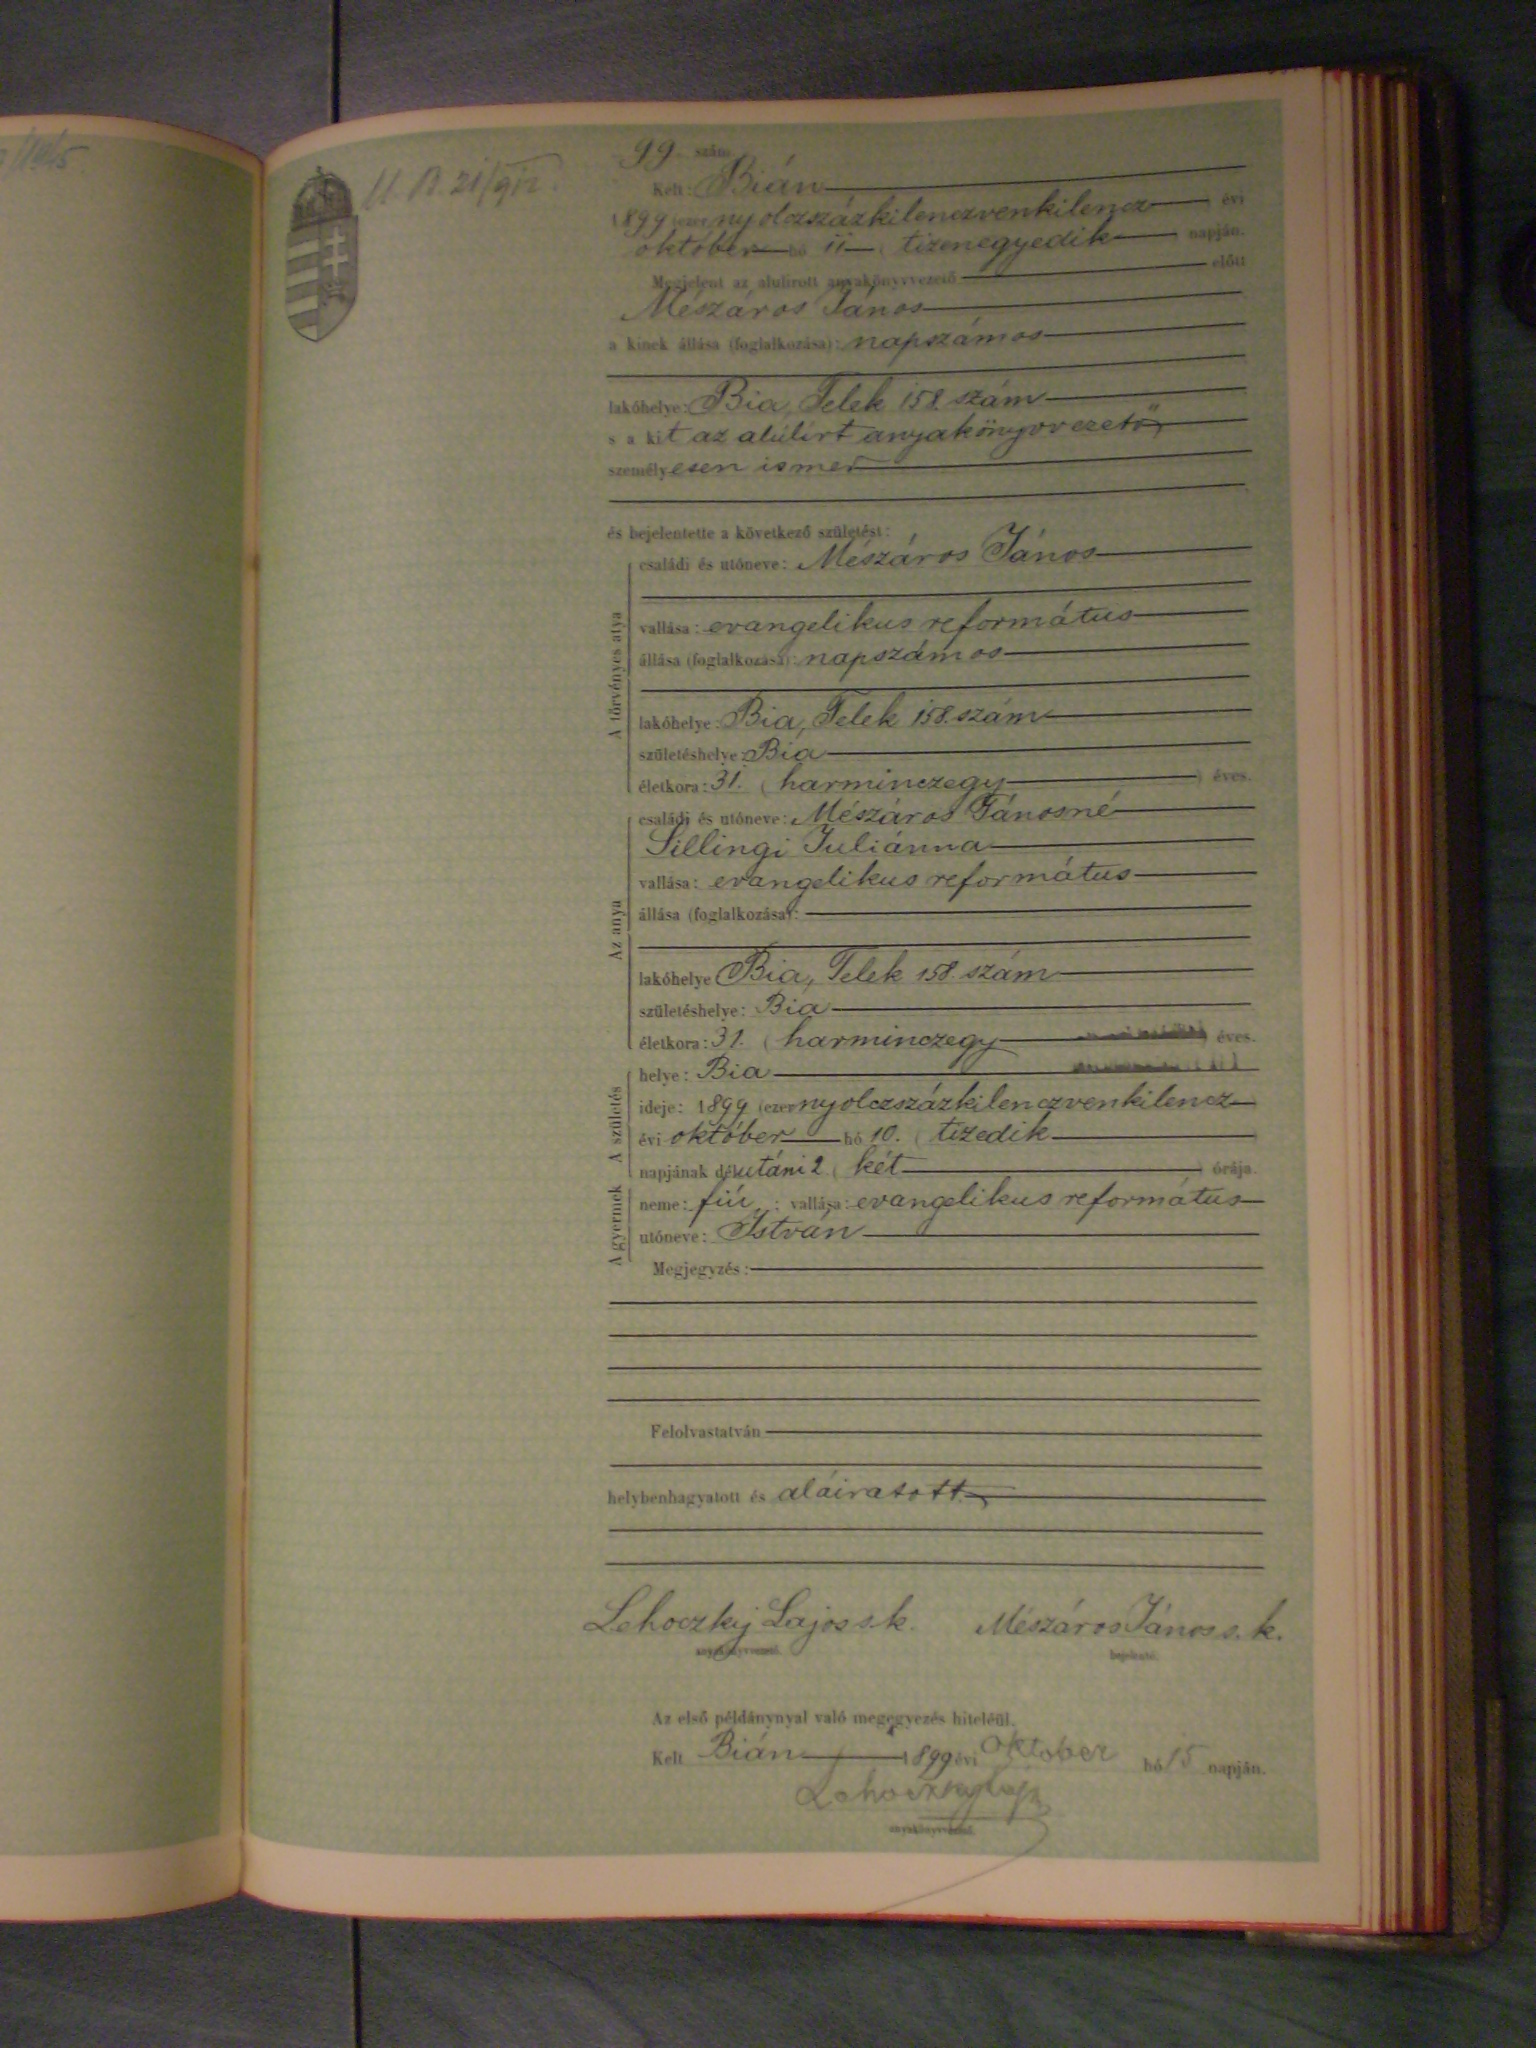 99. szám
Kelt: Bián
1899 (ezer nyolczszázkilenczvenkilencz) évi
október hó 11 (tizenegyedik) napján.
Megjelent az alulirott anyakönyvvezető előtt
Mészáros János
a kinek állása (foglalkozása): napszámos
lakóhelye: Bia, Telek 158. szám
s a kit az alúlírt anyakönyvvezető
személyesen ismer
és bejelentette a következő születést:
A törvényes atya
családi és utóneve: Mészáros János
vallása: evangelikus református
állása (foglalkozása): napszámos
lakóhelye: Bia, Telek 158. szám
születéshelye: Bia
életkora: 31. (harminczegy) éves.
Az anya
családi és utóneve: Mészáros Jánosné
Sillingi Juliánna
vallása: evangelikus református
állása (foglalkozása):
lakóhelye Bia, Telek 158. szám
születéshelye: Bia
életkora: 31. (harminczegy éves.
A születés
helye: Bia
ideje: 1899 (ezer nyolczszázkilenczvenkilencz
évi október hó 10. (tizedik
napjának délutáni 2 (két) órája.
A gyermek
neme: fiú; vallása: evangelikus református
utóneve: István
Megjegyzés:
Felolvastatván
helybenhagyatott és aláiratott.
Lehoczky Lajos s.k. Mészáros János s.k.
anyakönyvvezető. bejelentő.
Az első példánynyal való megegyezés hiteléül.
Kelt Bián 1899 évi október hó 15 napján.
Lehoczky Lajos
anyakönyvvezető.